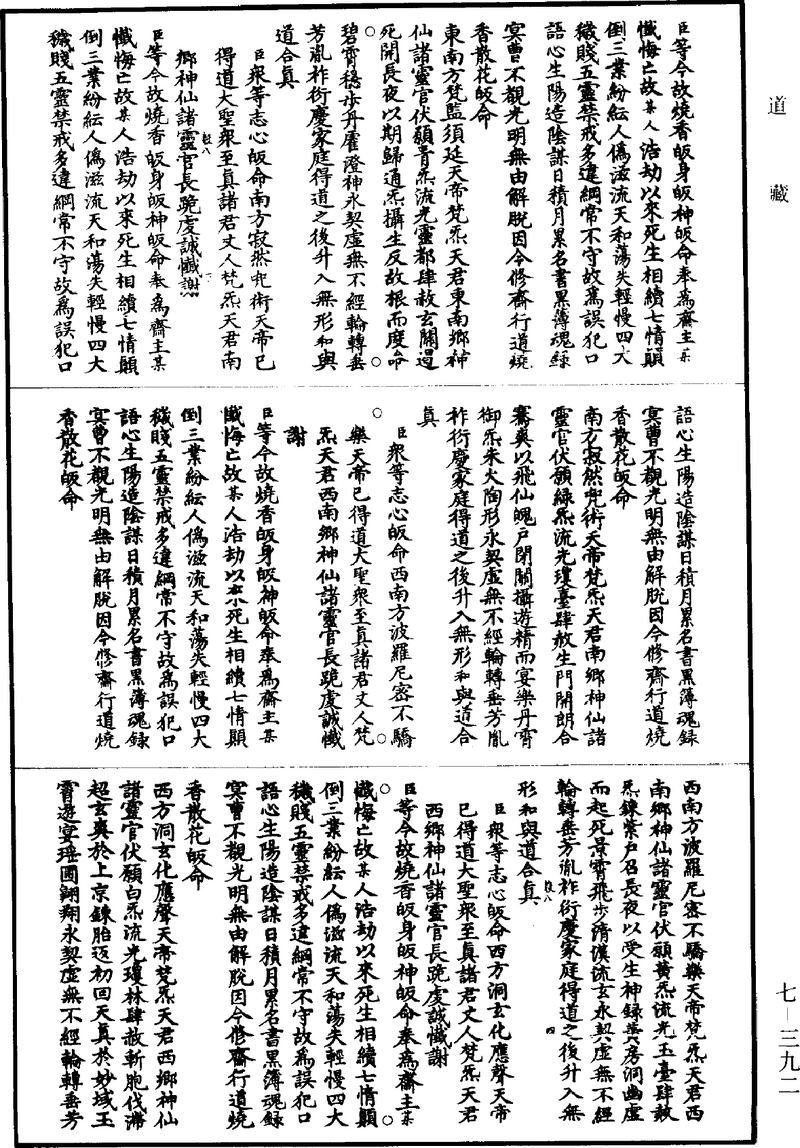 道藏
臣等今故燒香皈身皈神皈命奉為齋主某
懺悔亡故某人浩劫以來死生相續七情顛
倒三業紛紜人偽滋流天和蕩失輕慢四大
穢賤五靈禁戒多違綱常不守故為誤犯口
語心生陽造陰謀日積月累名書黑簿魂錄
冥曹不觀光明無由解脫因今修齋行道燒
香散花皈命
東南方梵監須延天帝梵炁天君東南鄉神
仙諸靈官伏願青炁流光靈都肆赦玄關過
死開長夜以期歸通炁攝生反故根而度命
碧霄穩步丹霍澄神永契虛無不經輪轉垂
芳胤祚衍慶家庭得道之後升入無形和與
道合真
臣眾等志心皈命南方寂然兜術天帝已
得道大聖眾至真諸君丈人梵炁天君南
鄉神仙諸靈官長跪虔誠懺謝
臣等今故燒香皈身皈神皈命奉為齋主某
懺悔亡故某人浩劫以來死生相續七情顛
倒三業紛紜人偽滋流天和蕩失輕慢四大
穢賤五靈禁戒多違綱常不守故為誤犯口
語心生陽造陰謀日積月累名書黑簿魂錄
冥曹不觀光明無由解脫因今修齋行道燒
香散花皈命
南方寂然兜術天帝梵炁天君南鄉神仙諸
靈官伏願綠炁流光瓊臺肆赦生門開朗合
騫爽以飛仙魄戶閉關攝遊精而宴樂丹霄
御炁朱火陶形永契虛無不經輪轉垂芳胤
祚衍慶家庭得道之後升入無形和與道合
真
臣眾等志心皈命西南方波羅尼密不驕
樂天帝已得道大聖眾至真諸君丈人梵
炁天君西南鄉神仙諸靈官長跪虔誠懺
謝
臣等今故燒香皈身皈神皈命奉為齋主某
懺悔亡故某人浩劫以來死生相續七情顛
倒三業紛紜人偽滋流天和蕩失輕慢四大
穢賤五靈禁戒多違綱常不守故為誤犯口
語心生陽造陰謀日積月累名書黑簿魂錄
冥曹不觀光明無由解脫因今修齋行道燒
香散花皈命
西南方波羅尼密不驕樂天帝梵炁天君西
南鄉神仙諸靈官伏願黃炁流光玉臺肆赦
炁鍊紫戶召長夜以受生神錄黃房洞幽虛
而起死景霄飛步清漢流玄永契虛無不經
輪轉垂芳胤祚衍慶家庭得道之後升入無
形和與道合真
臣眾等志心皈命西方洞玄化應聲天帝
已得道大聖眾至真諸君丈人梵炁天君
西鄉神仙諸靈官長跪虔誠懺謝
臣等今故燒香皈身皈神皈命奉為齋主某
懺悔亡故某人浩劫以來死生相續七情顛
倒三業紛紜人偽滋流天和蕩失輕慢四大
穢賤五靈禁戒多違綱常不守故為誤犯口
語心生陽造陰謀日積月累名書黑簿魂錄
冥曹不觀光明無由解脫因今修齋行道燒
香散花皈命
西方洞玄化應聲天帝梵炁天君西鄉神仙
諸靈官伏願白炁流光瓊林肆赦斬胞伐滯
超玄爽於上京鍊胎返初回天真於妙域玉
霄遊宴瑤圃翱翔永契虛無不經輪轉垂芳
七—三九二